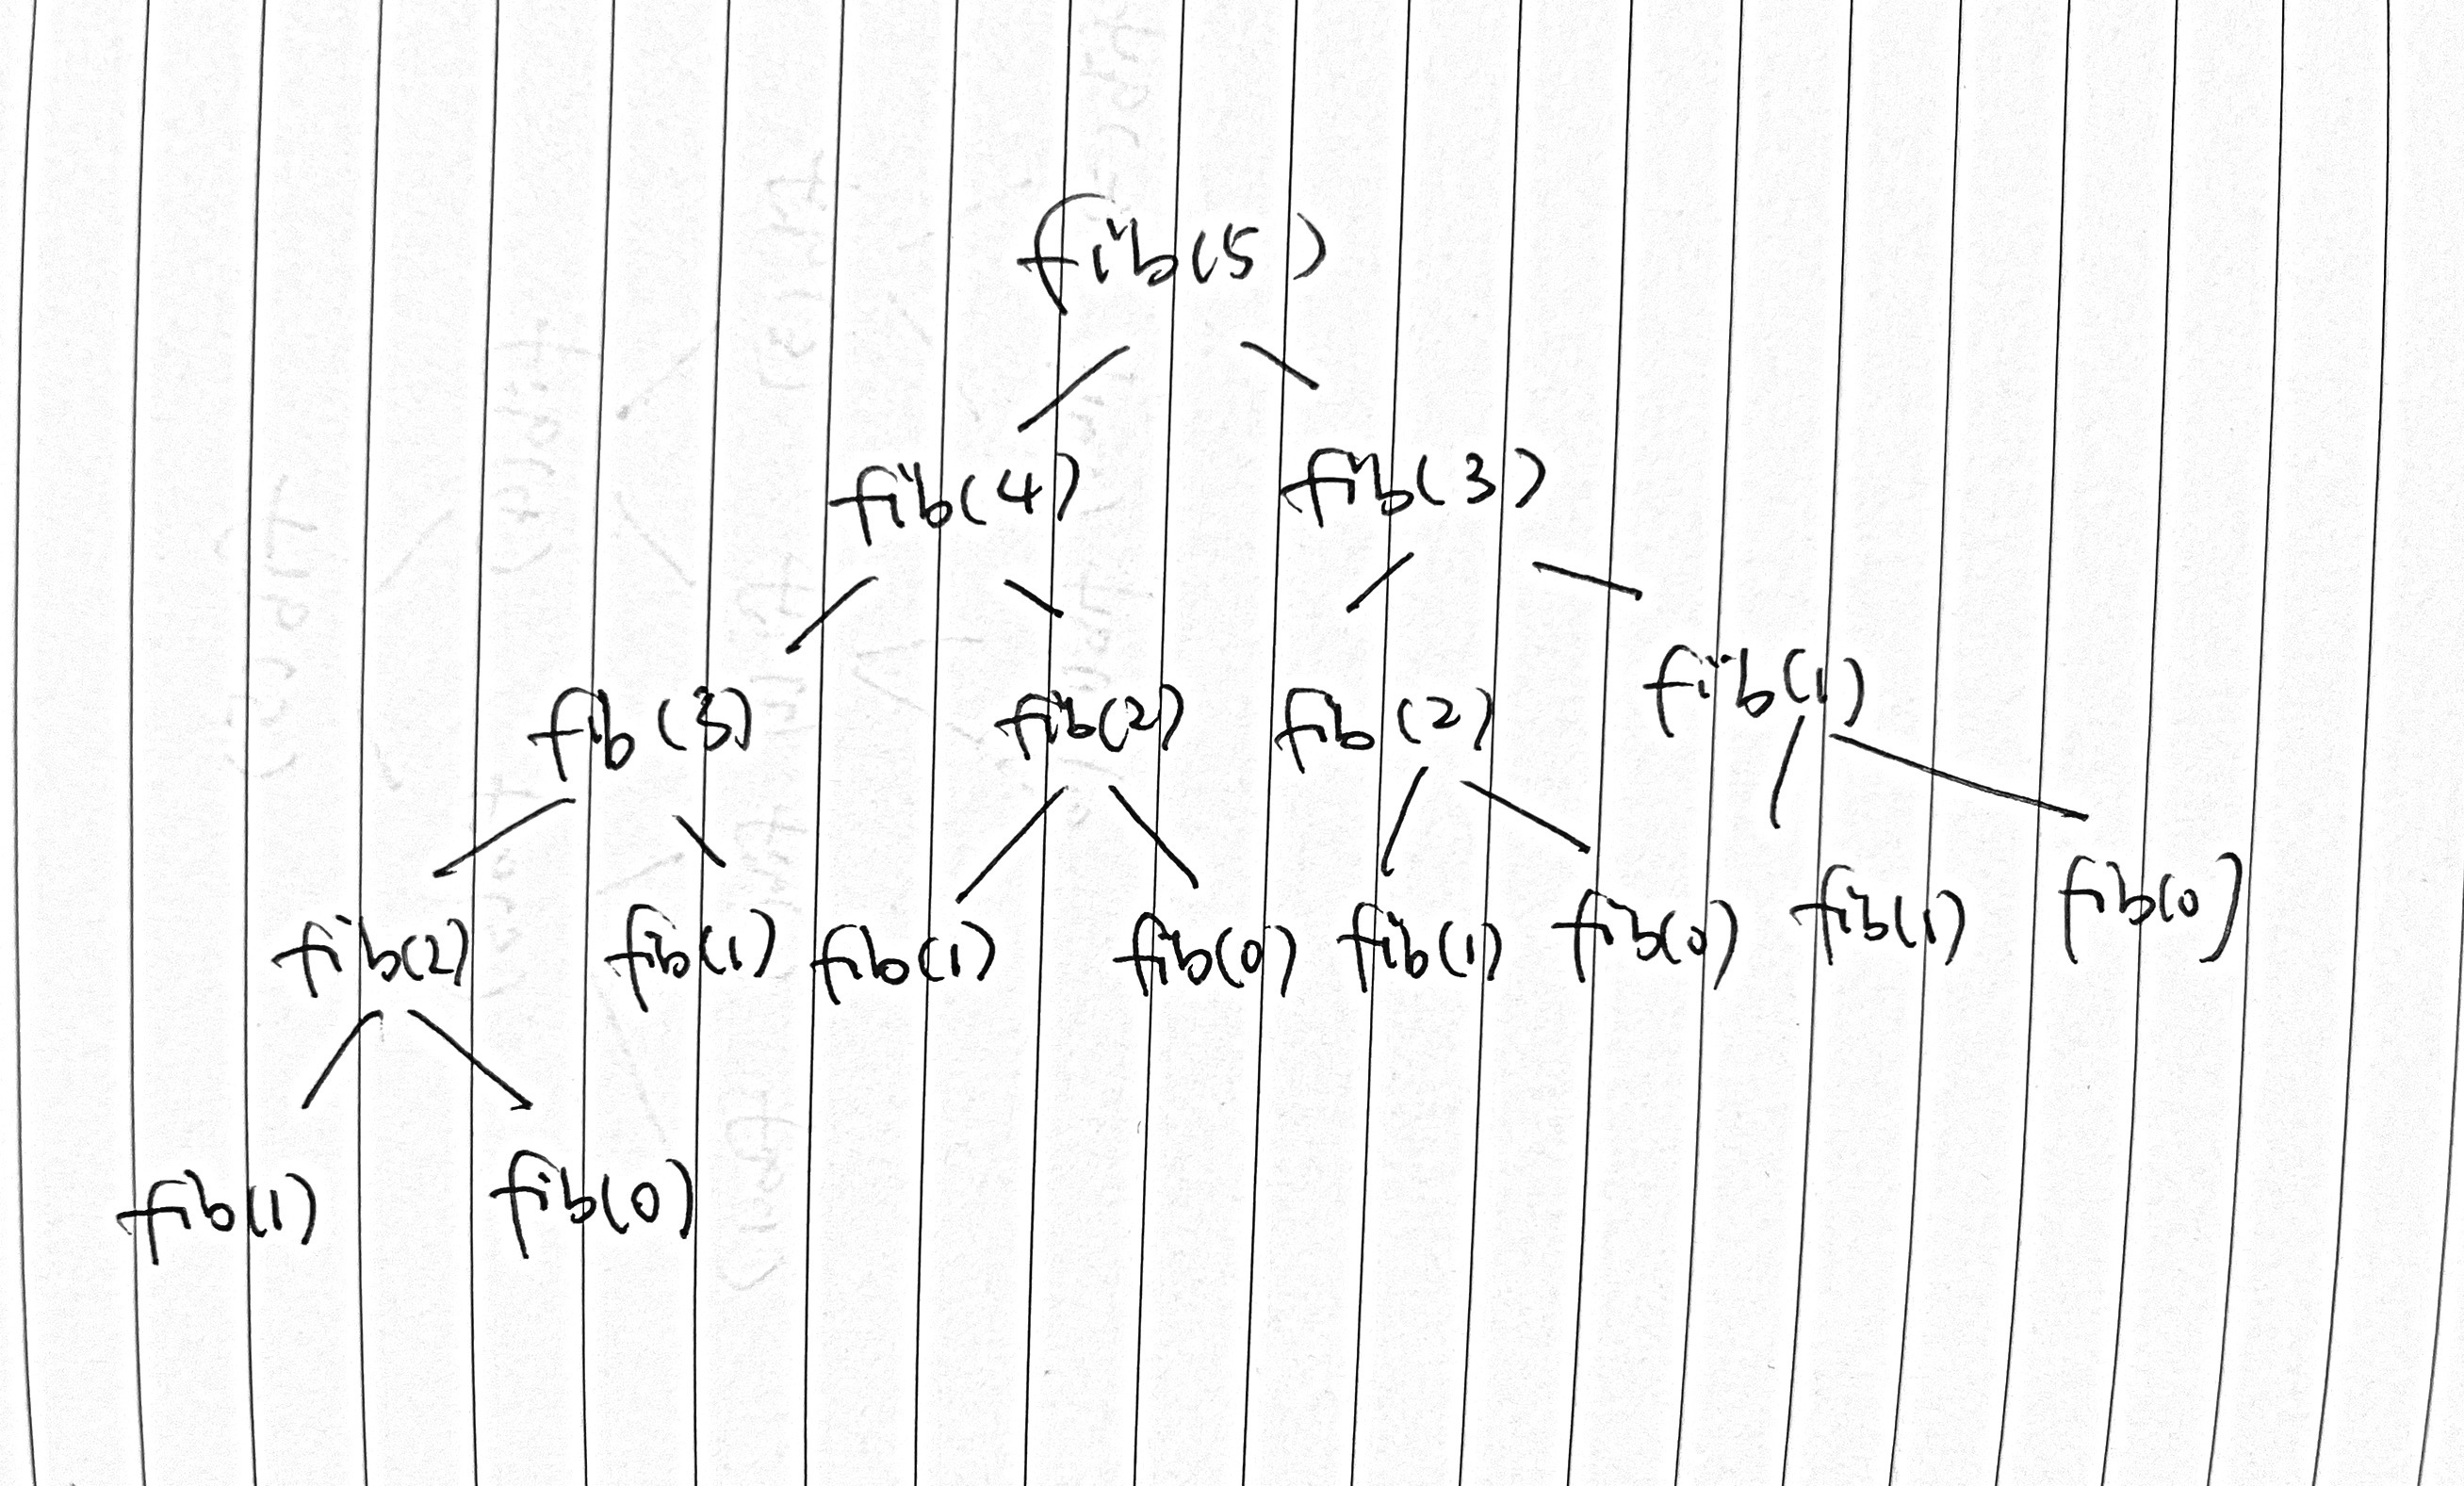 fib(5)
fib(4) fib(3)
fib(3) fib(2) fib(2) fib(1)
fib(2) fib(1) fib(1) fib(0) fib(1) fib(0) fib(1) fib(0)
fib(1) fib(0)